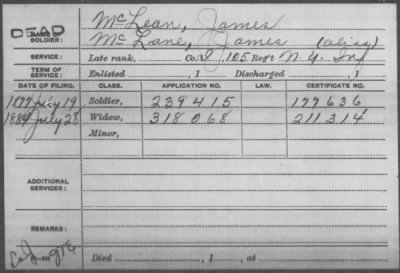 DEAD
NAME OF SOLDIER: McLean, James
McLane, James (alias)
SERVICE: Late rank, Co. I, 105 Reg't N.Y. Inf
TERM OF SERVICE: Enlisted , 1 Discharged , 1
DATE OF FILING. CLASS. APPLICATION NO. LAW. CERTIFICATE NO.
1877 July 19 Soldier, 239415 177636
1884 July 28 Widow, 318068 211314
Minor,
ADDITIONAL SERVICES:
REMARKS:
Died , 1 , at